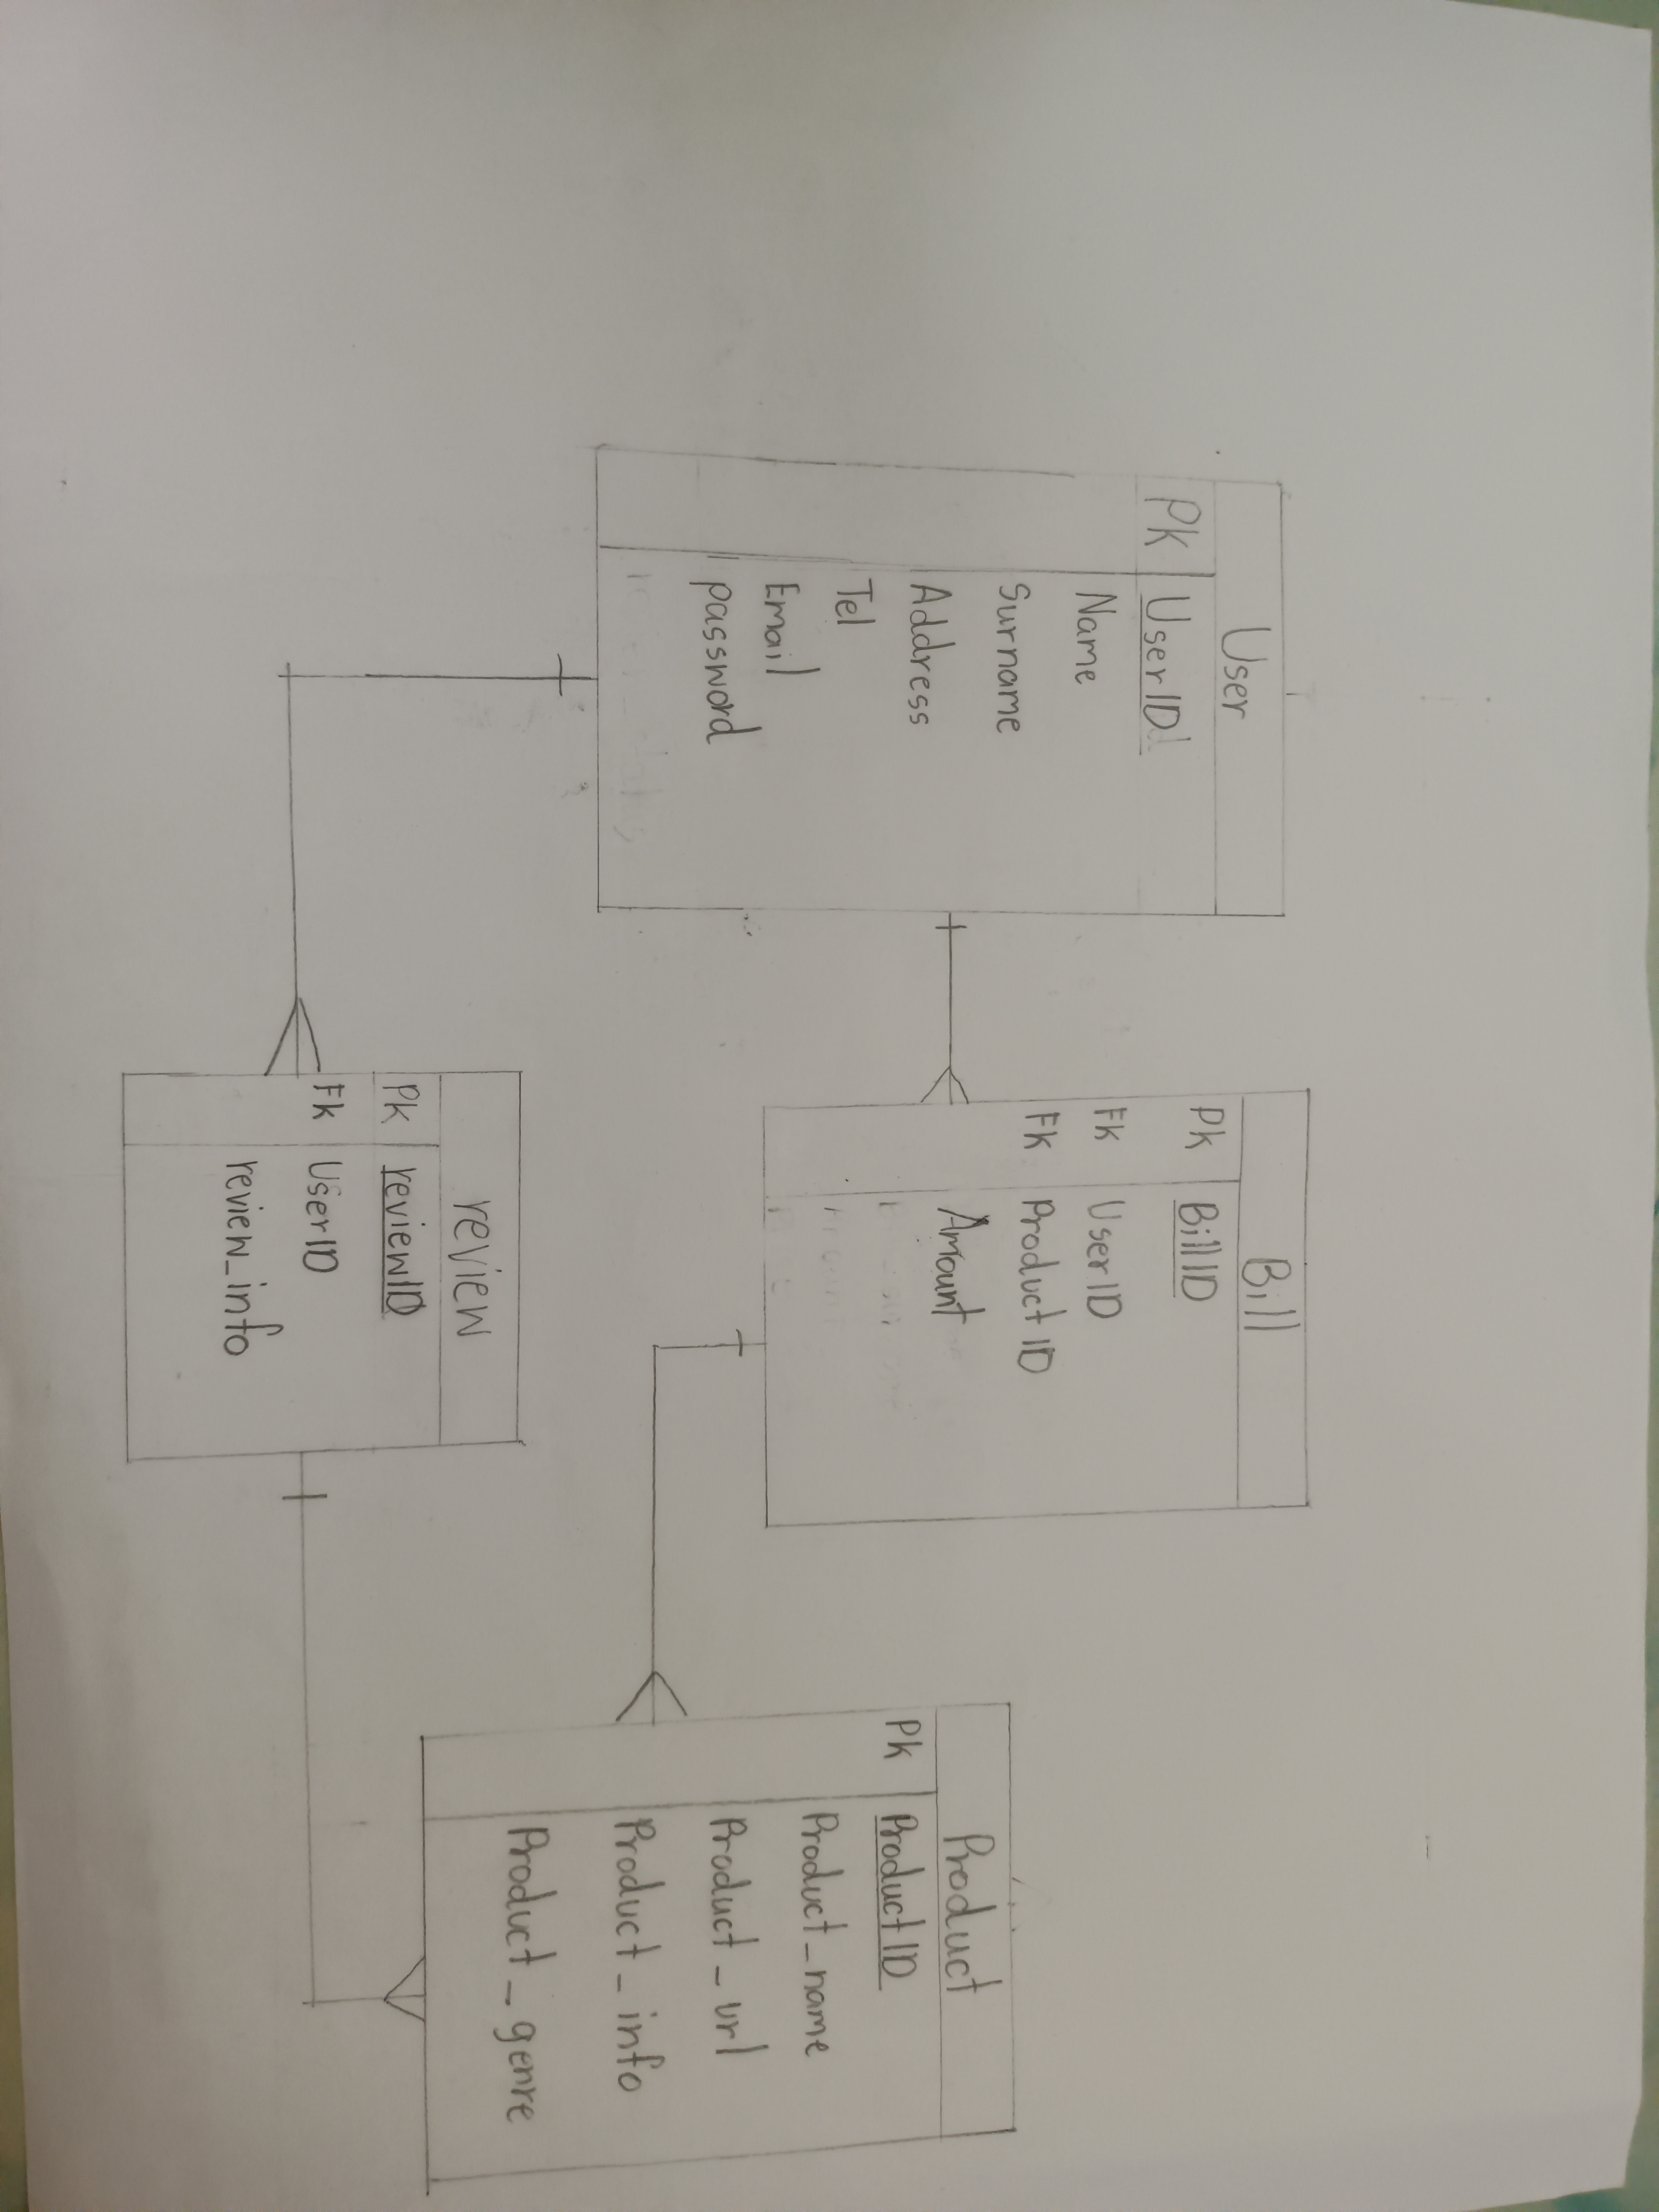 User
PK UserID
Name
Surname
Address
Tel
Email
password
Bill
PK BillID
FK UserID
FK ProductID
Amount
review
PK reviewID
FK UserID
review_info
Product
PK ProductID
Product_name
Product_url
Product_info
Product_genre